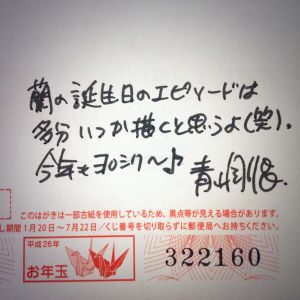 蘭の誕生日のエピソードは
多分いつか描くと思うよ(笑).
今年もヨロシク〜♪
青山剛昌
このはがきは一部古紙を使用しているため、黒点等が見える場合があります。
し期間 1月20日〜7月22日/くじ番号を切り取らずに郵便局へお持ちください。
平成26年
お年玉
322160